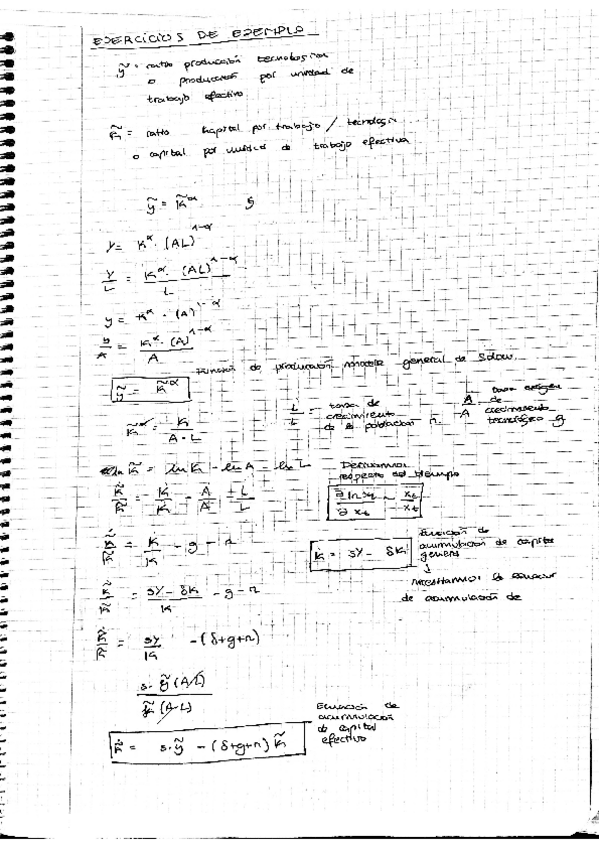 EJERCICIOS DE EJEMPLO
ỹ = ratio producción tecnológica
o producción por unidad de
trabajo efectivo.
k̃ = ratio kapital por trabajo / tecnología
o capital por unidad de trabajo efectiva
ỹ = k̃^α
Y = K^α · (AL)^1-α
Y/L = K^α · (AL)^1-α / L
y = k^α · (A)^1-α
y/A = k^α · (A)^1-α / A
Función de producción general de Solow.
ỹ = k̃^α
k̃ = K / A·L
L̇/L = tasa de crecimiento de la población n.
Ȧ/A = Tasa de crecimiento tecnológico g
ln k̃ = ln K - ln A - ln L
Derivamos respecto del tiempo
k̃̇/k̃ = K̇/K - Ȧ/A - L̇/L
∂ ln x_t / ∂ x_t = ẋ_t / x_t
k̃̇/k̃ = K̇/K - g - n
K̇ = sY - δK
Ecuación de
acumulación de capital
general
↓
necesitamos la ecuación
de acumulación de
k̃̇/k̃ = sY - δK / K - g - n
k̃̇/k̃ = sY/K - (δ+g+n)
s·ỹ (A·L) / k̃ (A·L)
Ecuación de
acumulación
de capital
efectivo
k̃̇ = s·ỹ - (δ+g+n) k̃